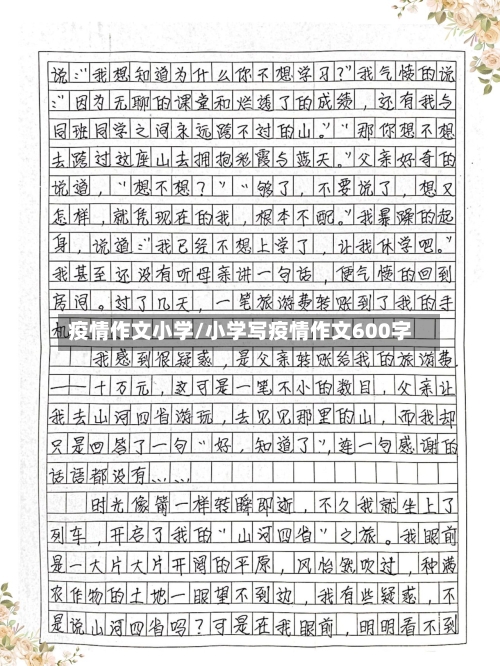 说:“我想知道为什么你不想学习?”我气愤的说
:“因为无聊的课堂和烂透了的成绩,还有我与
同班同学之间永远跨不过的山。”“那你想不想
去跨过这座山去拥抱彩霞与蓝天。”父亲好奇的
说道,“想不想?”“够了,不要说了,想又
怎样,就凭现在的我,根本不配。”我暴躁的起
身,说道:“我已经不想上学了,让我休学吧。”
我甚至还没有听母亲讲一句话,便气愤的回到
房间。过了几天,一笔旅游费转账到了我的手
机
疫情作文小学/小学写疫情作文600字
我感到很疑惑,是父亲转账给我的旅游费
——十万元,这可是一笔不小的数目,父亲让
我去山河四省游玩,去见见那里的山,而我却
只是回答了一句“好,知道了”,连一句感谢的
话语都没有……
时光像箭一样转瞬即逝,不久我就坐上了
列车,开启了我的“山河四省”之旅。我眼前
是一大片大片开阔的平原,风怡然吹过,种满
农作物的土地一眼望不到边,我有些疑惑,不
是说山河四省吗?可是在我眼前,明明看不到